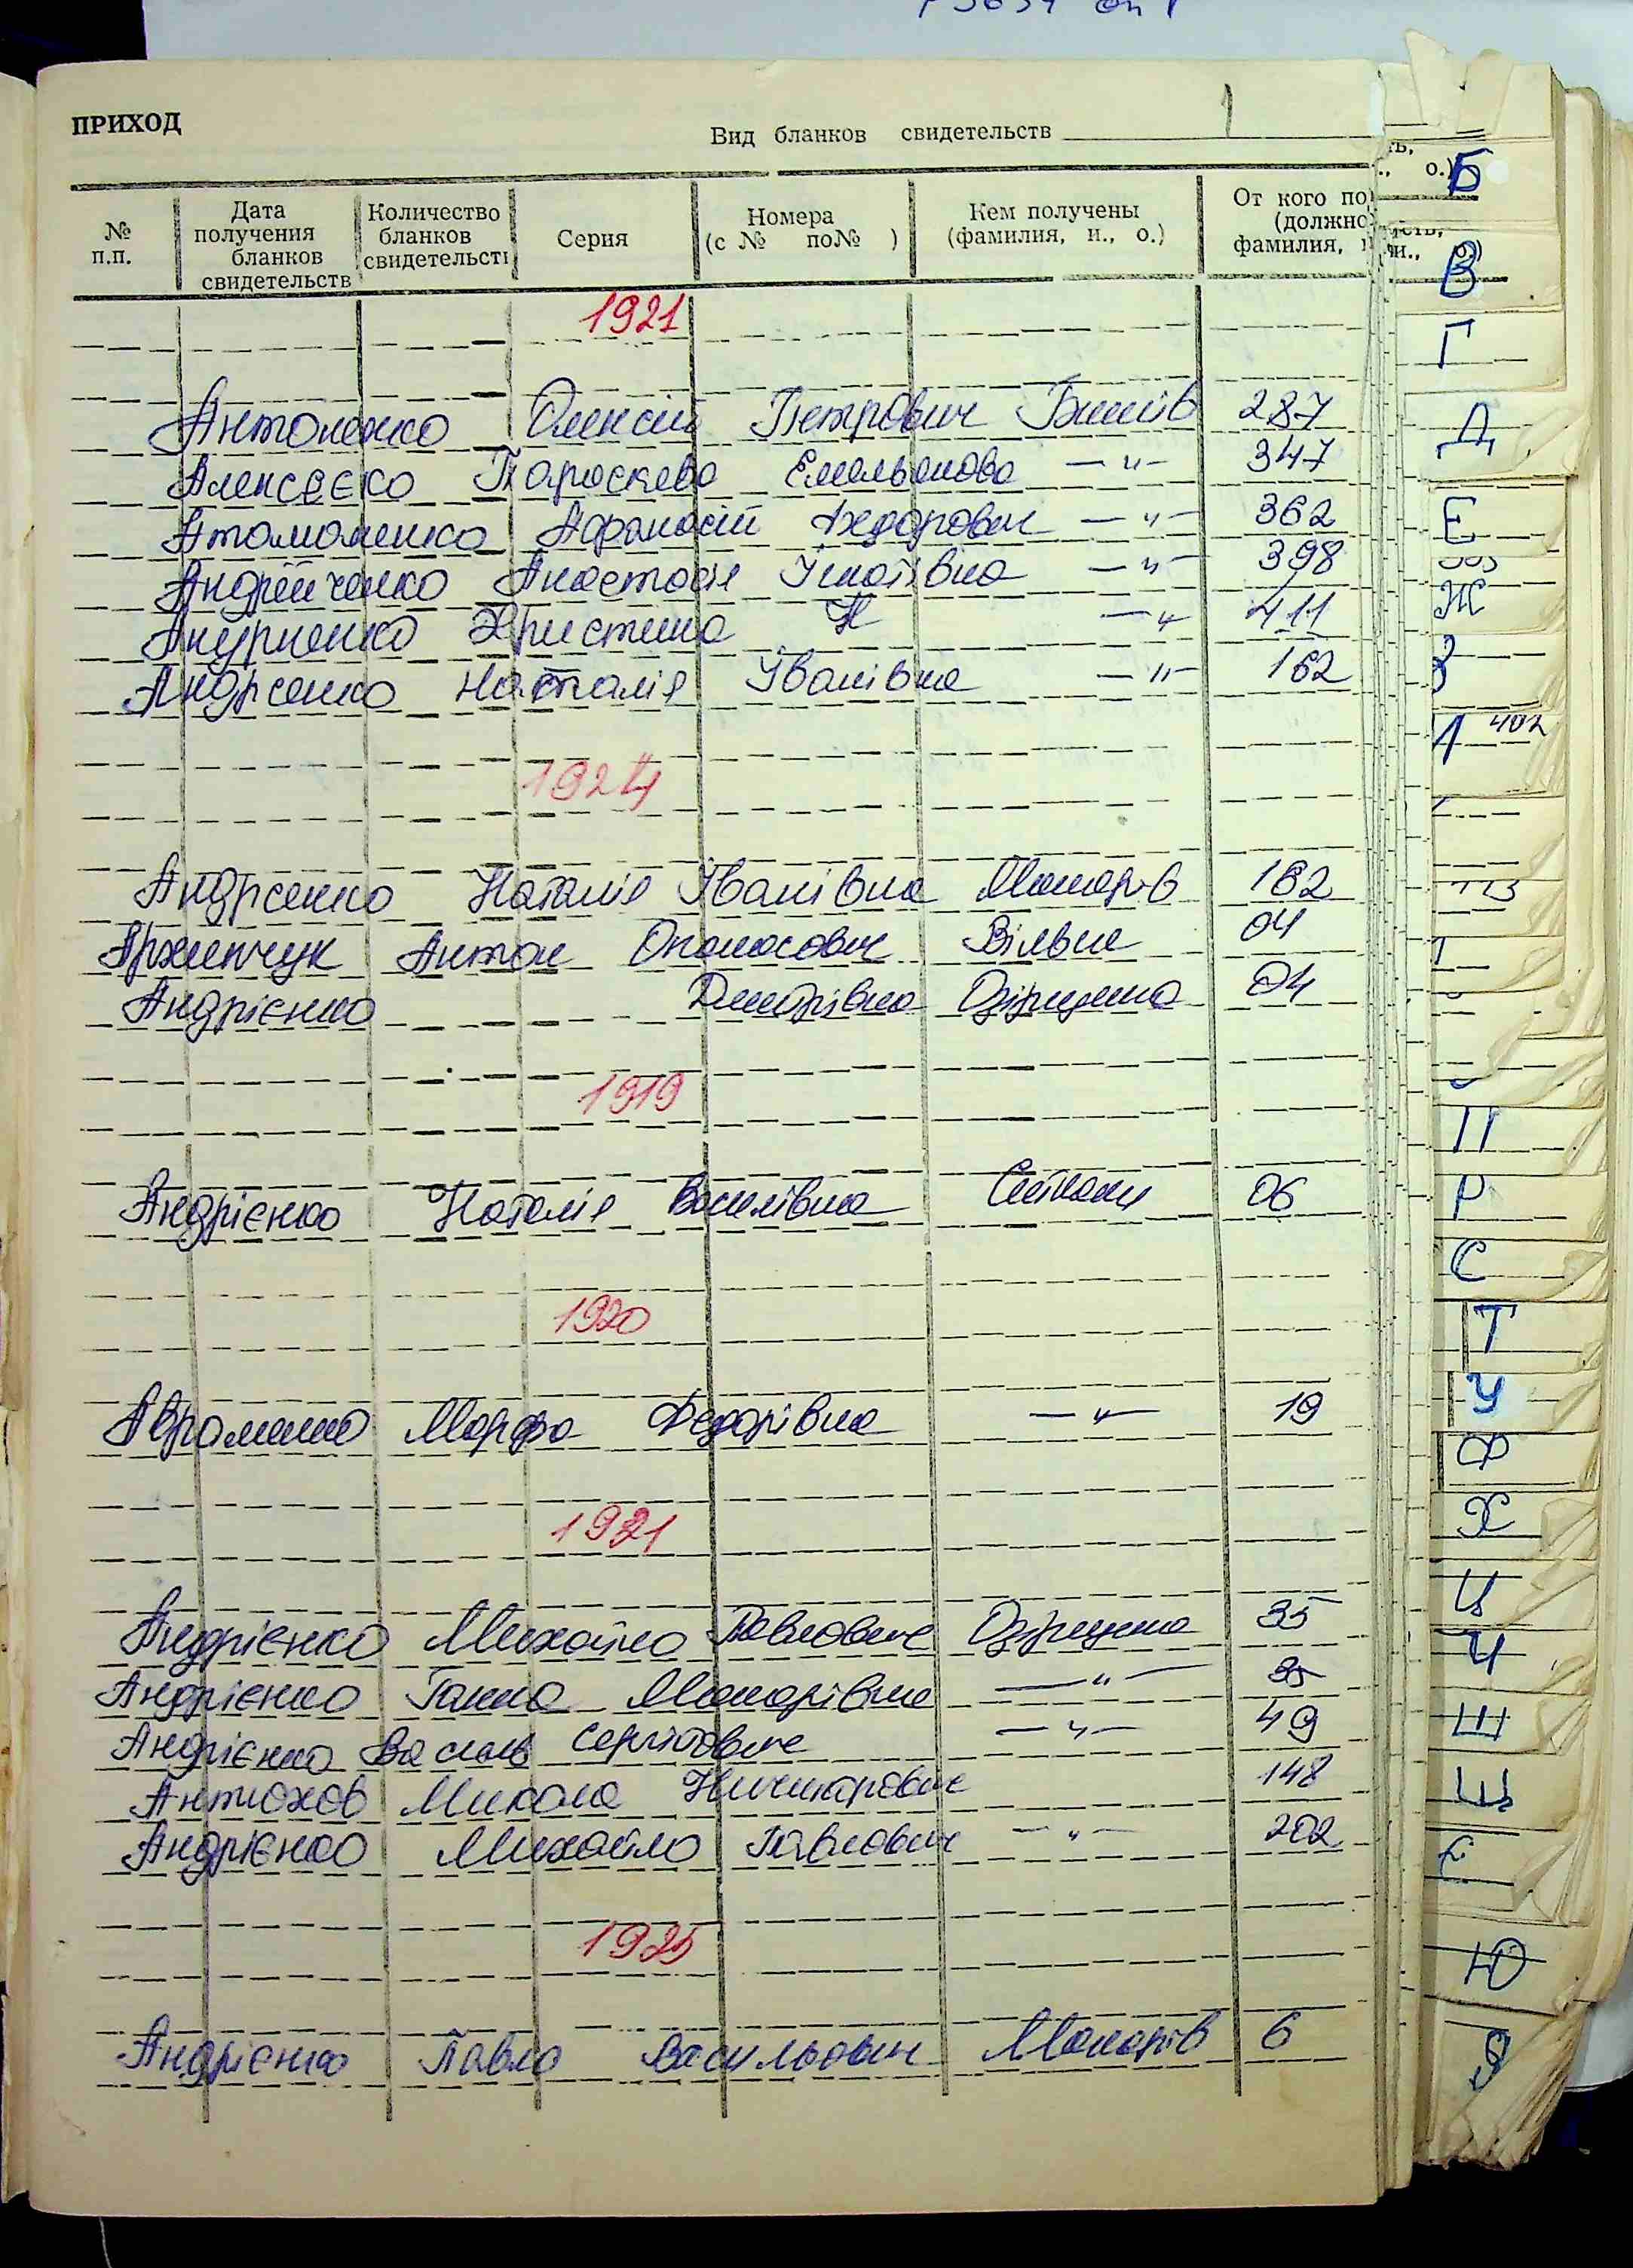 ПРИХОД
Вид бланков свидетельств 1
№ п.п.
Дата получения бланков свидетельств
Количество бланков свидетельств
Серия
Номера (с № по№ )
Кем получены (фамилия, и., о.)
От кого по (должно фамилия,
1921
Антоненко Олексій Петрович 287
Параскева Емельянова —"— 347
Атаманенко Афанасій Федорович —"— 362
Андрійченко Анастасія Ігнатівна —"— 398
Христина Н —"— 411
Андрсенко Наталія Іванівна —"— 162
1924
Андрсенко Наталія Іванівна Макарів 162
Архипчук Антон Опанасович Вільне 04
Андрієнко Дмитрівна 04
1919
Андрієнко Наталія Василівна 06
1920
Авраменко Марфа Федорівна —"— 19
1921
Андрієнко Михайло Павлович 35
Андрієнко Ганна Макарівна —"— 35
Андрієнко Василь Сергійович —"— 49
Антюхов Микола 148
Андрієнко Михайло Павлович —"— 202
1925
Андрієнко Павло Васильович Макарів 6
Б
В
Г
Д
Е
Ж
З
402
П
Р
С
Т
У
Ф
Х
Ц
Ч
Ш
Щ
Є
Ю
Я